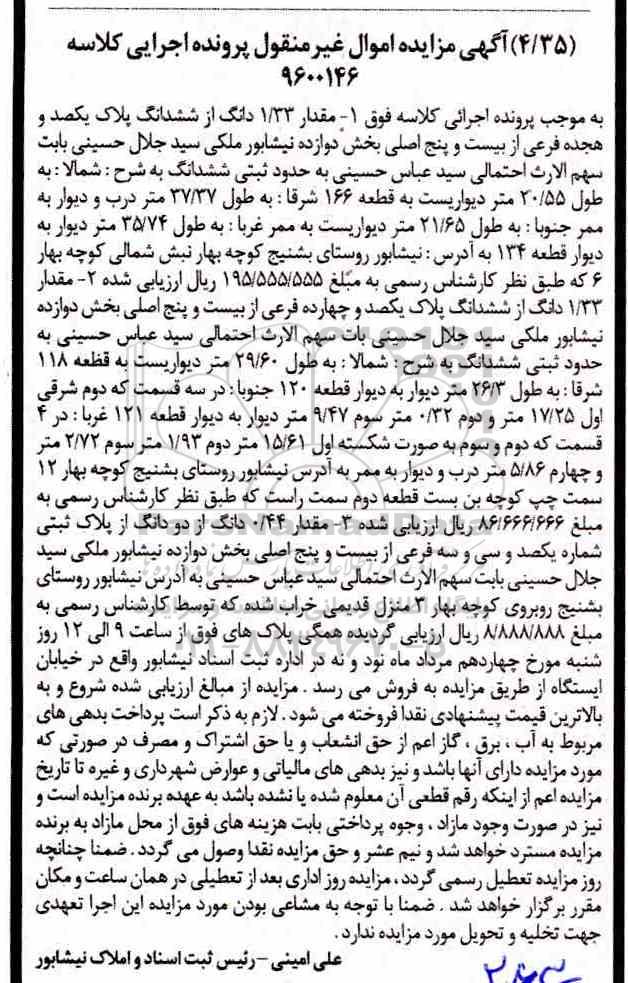 (۴/۳۵) آگهی مزایده اموال غیر منقول پرونده اجرایی کلاسه
۹۶۰۰۱۴۶
به موجب پرونده اجرائی کلاسه فوق ۱- مقدار ۱/۳۳ دانگ از ششدانگ پلاک یکصد و
هجده فرعی از بیست و پنج اصلی بخش دوازده نیشابور ملکی سید جلال حسینی بابت
سهم الارث احتمالی سید عباس حسینی به حدود ثبتی ششدانگ به شرح : شمالا : به
طول ۲۰/۵۵ متر دیواریست به قطعه ۱۶۶ شرقا : به طول ۳۷/۳۷ متر درب و دیوار به
ممر جنوبا : به طول ۲۱/۶۵ متر دیواریست به ممر غربا : به طول ۳۵/۷۴ متر دیوار به
دیوار قطعه ۱۳۴ به آدرس : نیشابور روستای بشنیج کوچه بهار نبش شمالی کوچه بهار
۶ که طبق نظر کارشناس رسمی به مبلغ ۱۹۵/۵۵۵/۵۵۵ ریال ارزیابی شده ۲- مقدار
۱/۳۳ دانگ از ششدانگ پلاک یکصد و چهارده فرعی از بیست و پنج اصلی بخش دوازده
نیشابور ملکی سید جلال حسینی بات سهم الارث احتمالی سید عباس حسینی به
حدود ثبتی ششدانگ به شرح : شمالا : به طول ۲۹/۶۰ متر دیواریست به قطعه ۱۱۸
شرقا : به طول ۲۶/۳ متر دیوار به دیوار قطعه ۱۲۰ جنوبا : در سه قسمت که دوم شرقی
اول ۱۷/۲۵ متر و دوم ۰/۳۲ متر سوم ۹/۴۷ متر دیوار به دیوار قطعه ۱۲۱ غربا : در ۴
قسمت که دوم و سوم به صورت شکسته اول ۱۵/۶۱ متر دوم ۱/۹۳ متر سوم ۲/۷۲ متر
و چهارم ۵/۸۶ متر درب و دیوار به ممر به آدرس نیشابور روستای بشنیج کوچه بهار ۱۲
سمت چپ کوچه بن بست قطعه دوم سمت راست که طبق نظر کارشناس رسمی به
مبلغ ۸۶/۶۶۶/۶۶۶ ریال ارزیابی شده ۳- مقدار ۰/۴۴ دانگ از دو دانگ از پلاک ثبتی
شماره یکصد و سی و سه فرعی از بیست و پنج اصلی بخش دوازده نیشابور ملکی سید
جلال حسینی بابت سهم الارث احتمالی سید عباس حسینی به آدرس نیشابور روستای
بشنیج روبروی کوچه بهار ۳ منزل قدیمی خراب شده که توسط کارشناس رسمی به
مبلغ ۸/۸۸۸/۸۸۸ ریال ارزیابی گردیده همگی پلاک های فوق از ساعت ۹ الی ۱۲ روز
شنبه مورخ چهاردهم مرداد ماه نود و نه در اداره ثبت اسناد نیشابور واقع در خیابان
ایستگاه از طریق مزایده به فروش می رسد . مزایده از مبالغ ارزیابی شده شروع و به
بالاترین قیمت پیشنهادی نقدا فروخته می شود . لازم به ذکر است پرداخت بدهی های
مربوط به آب ، برق ، گاز اعم از حق انشعاب و یا حق اشتراک و مصرف در صورتی که
مورد مزایده دارای آنها باشد و نیز بدهی های مالیاتی و عوارض شهرداری و غیره تا تاریخ
مزایده اعم از اینکه رقم قطعی آن معلوم شده یا نشده باشد به عهده برنده مزایده است و
نیز در صورت وجود مازاد ، وجوه پرداختی بابت هزینه های فوق از محل مازاد به برنده
مزایده مسترد خواهد شد و نیم عشر و حق مزایده نقدا وصول می گردد . ضمنا چنانچه
روز مزایده تعطیل رسمی گردد ، مزایده روز اداری بعد از تعطیلی در همان ساعت و مکان
مقرر برگزار خواهد شد . ضمنا با توجه به مشاعی بودن مورد مزایده این اجرا تعهدی
جهت تخلیه و تحویل مورد مزایده ندارد .
علی امینی - رئیس ثبت اسناد و املاک نیشابور